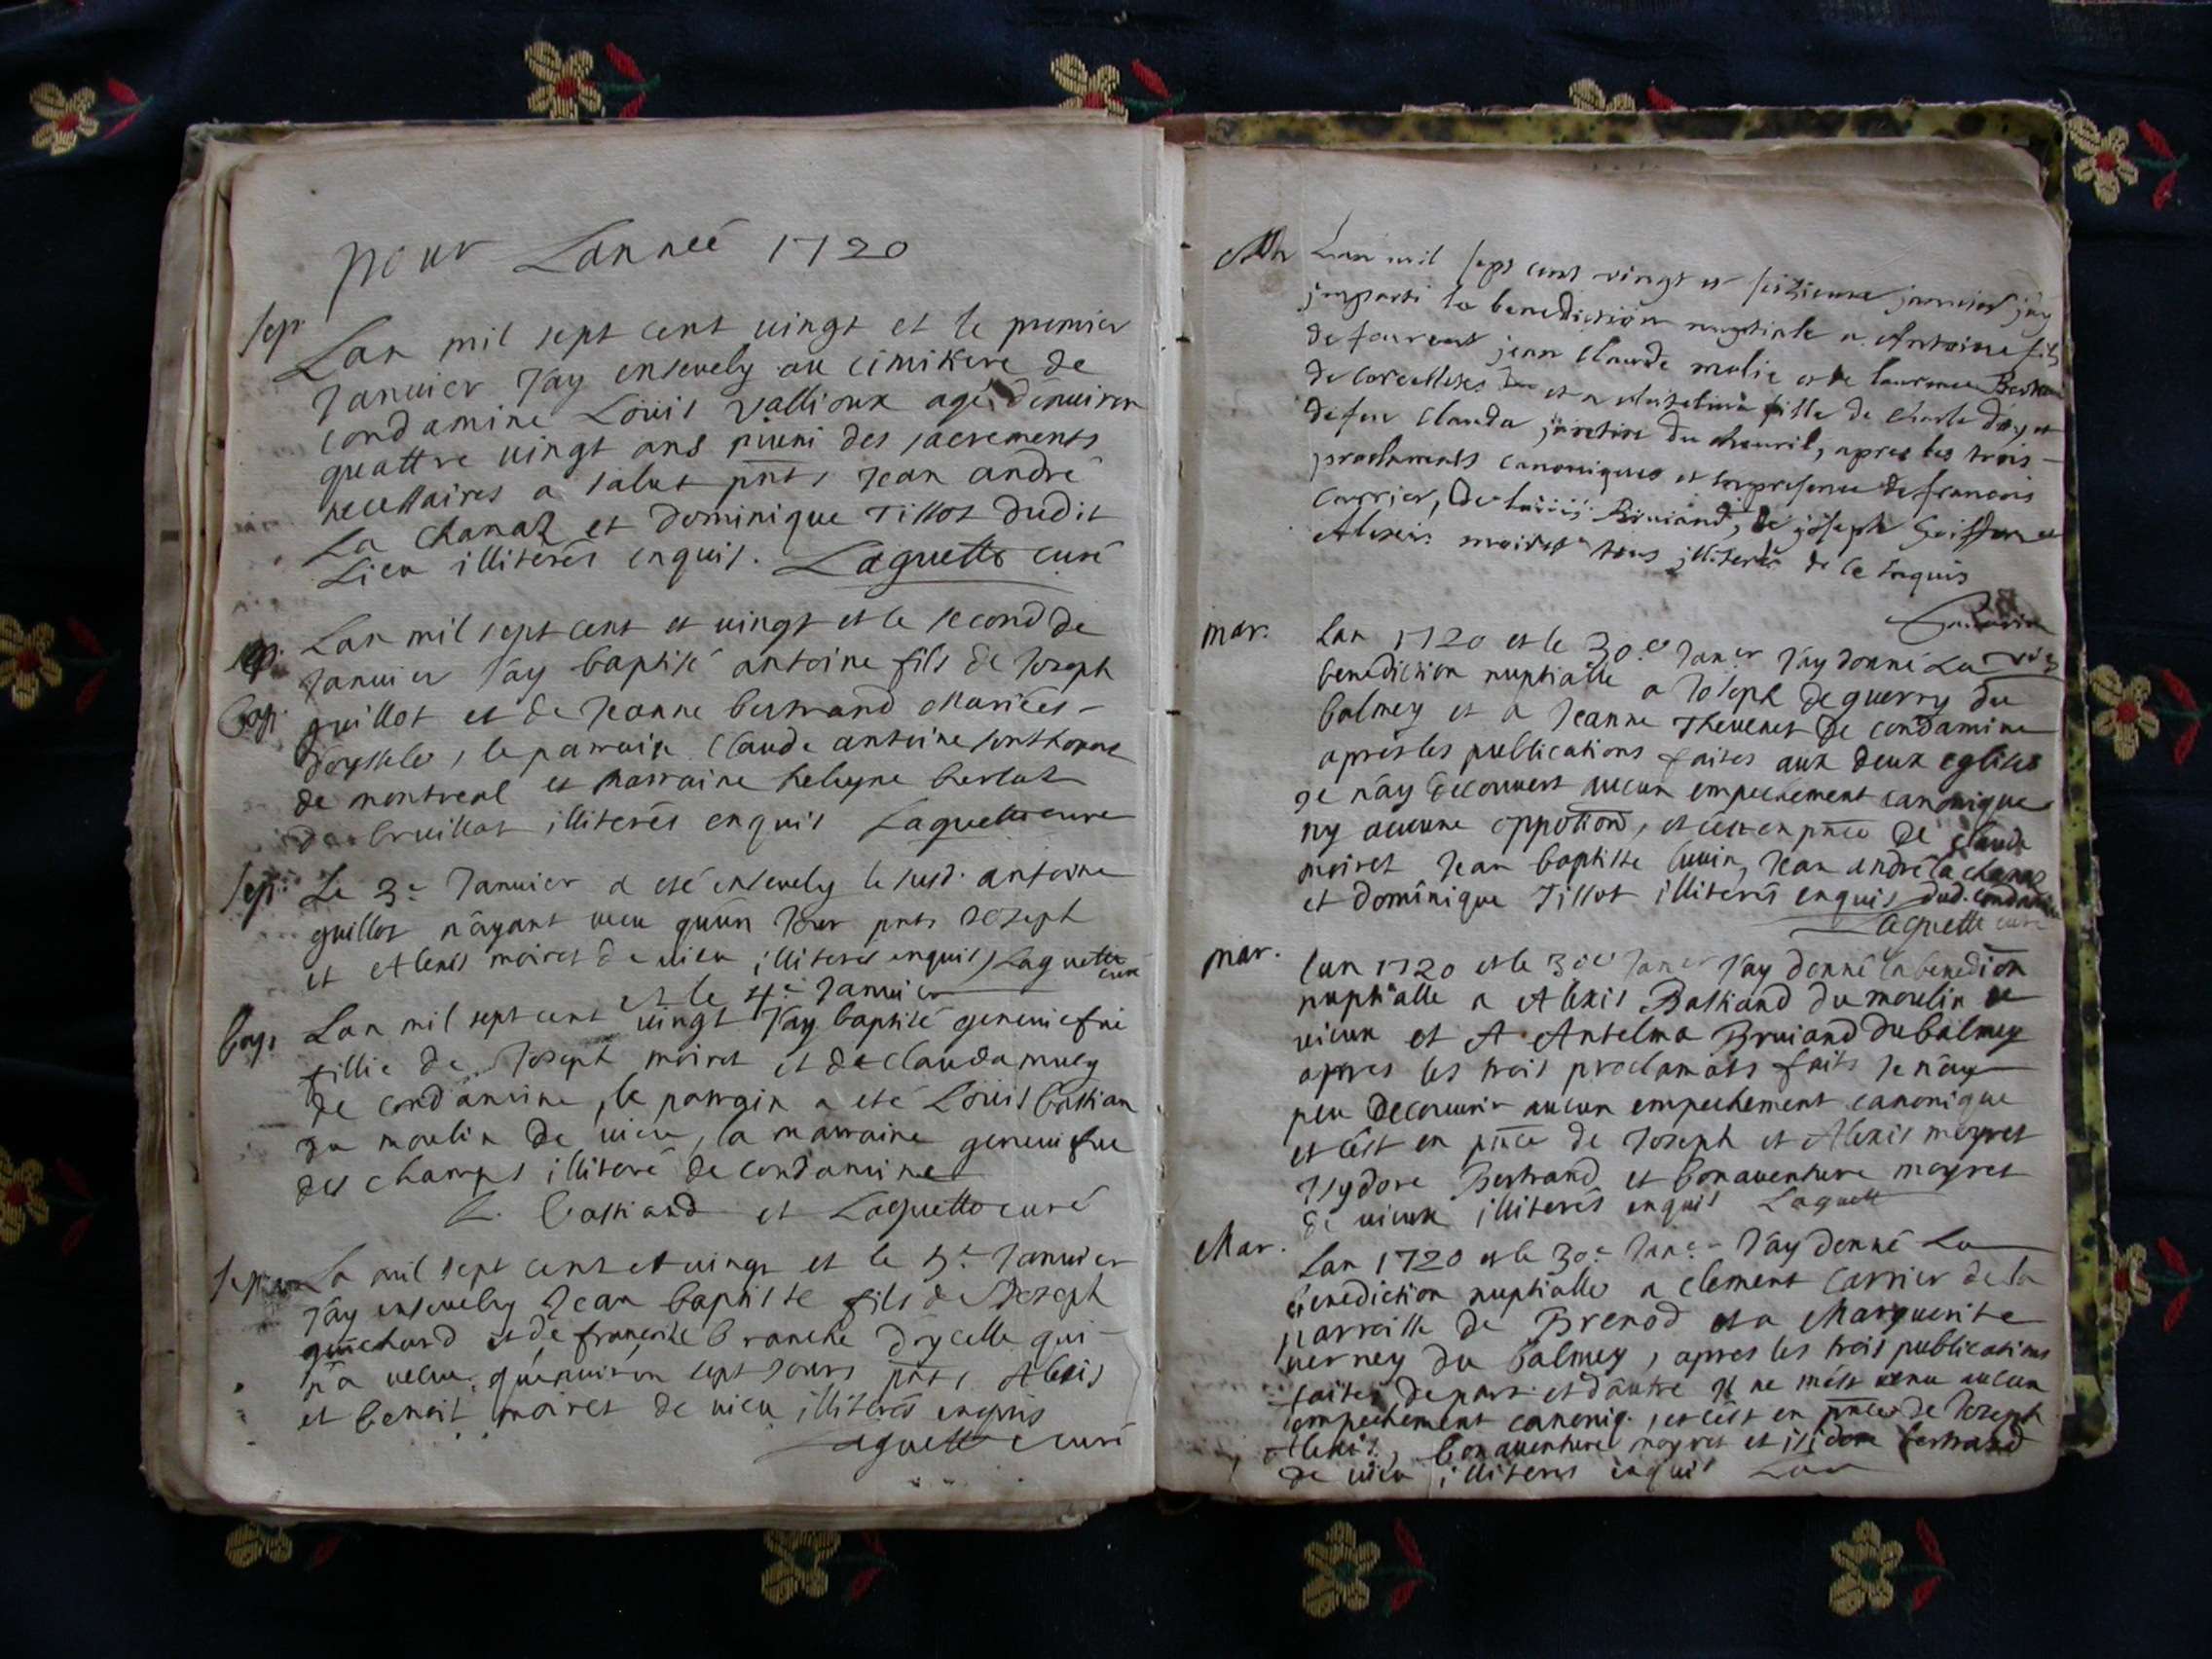 pour Lanneé 1720
sep.
Lan mil sept cent vingt et le premier
Janvier Jay ensevely au cimitiere de
condamine Loüis Vallioux agé denviron
quattre vingt ans muni des sacrements
necessaires a salut pnts Jean andré
La Chanaz et Dominique Tissot dudit
Lieu illiterés enquis. Laguette curé
Lan mil sept cent et vingt et le second de
Janvier Jáy baptisé antoine fils de Joseph
bap. guillot et de Jeanne bertrand Mariées
le parrain Claude antoine
de montreal et marraine
illiterés enquis Laguette cure
sep. Le 3e Janvier a eté ensevely le susd. antoine
guillot náyant vecu quún Jour pnts Joseph
et Alexis moiret de vieu illiteres enquis Laguette
cure
et le 4e Janvier
bap. Lan mil sept cent vingt Jay baptisé
fillie de Joseph moiret et de Clauda
de condamine, le parrain a eté Loüis bastian
du moulin de vieu, la marraine
des champs illiteré de condamine
L. bastiand et Laguette curé
sep. La mil sept cent et vingt et le 5e Janvier
Jáy ensevely Jean baptiste fils de Joseph
guichard et de françoise branche dýcelle qui
ná vecu quénviron sept Jours pnts Alexis
et benoit moiret de vieu illiterés enquis
Laguette curé
Lan mil sept cent vingt et seizieme janvier jay
imparti la benediction nuptiale a Antoine fils
de feu jean Claude et de laurence
de Corcelles et a fille de Charle et
de feu Clauda du, apres les trois
proclamats canoniques et en presence de francois
Carrier, de loüis Bruiand, de joseph et
Alexis moiret tous jlliterés de ce enquis
mar. Lan 1720 et le 30e Janer Jáy donné La
benediction nuptialle a Joseph Deguerry du
balmey et a Jeanne Thevenet De condamine
aprés les publications faites aux deux eglises
Je náy decouvert aucun empechement canonique
ny aucune oppotion, et cést en pnce De Claude
moiret Jean baptiste Jean andré la chanaz
et Dominique Tissot illiterés enquis dud. condamine
Laguette curé
mar. Lan 1720 et le 30e Janer Jáy donné la benedion
nuptialle a Alexis Bastiand du moulin de
vieux et A Antelma Bruiand du balmey
apres les trois proclamats faits Je náy
peu Decouvrir aucun empechement canonique
et cést en pnce de Joseph et Alexis moyret
Isydore Bertrand et bonaventure moyret
de vieux illiterés enquis Laguett
Mar. Lan 1720 et le 30e Janer Jáy donné La
benediction nuptialle a Clement Carrier de la
parroisse de Brenod et a Marguerite
verney du balmey, apres les trois publications
faites de part et dáutre Il ne mést venu aucun
empechement canoniq., et cést en pnce de Joseph
Alexis, bonaventure moyret et isidore bertrand
de vieu illiteres enquis